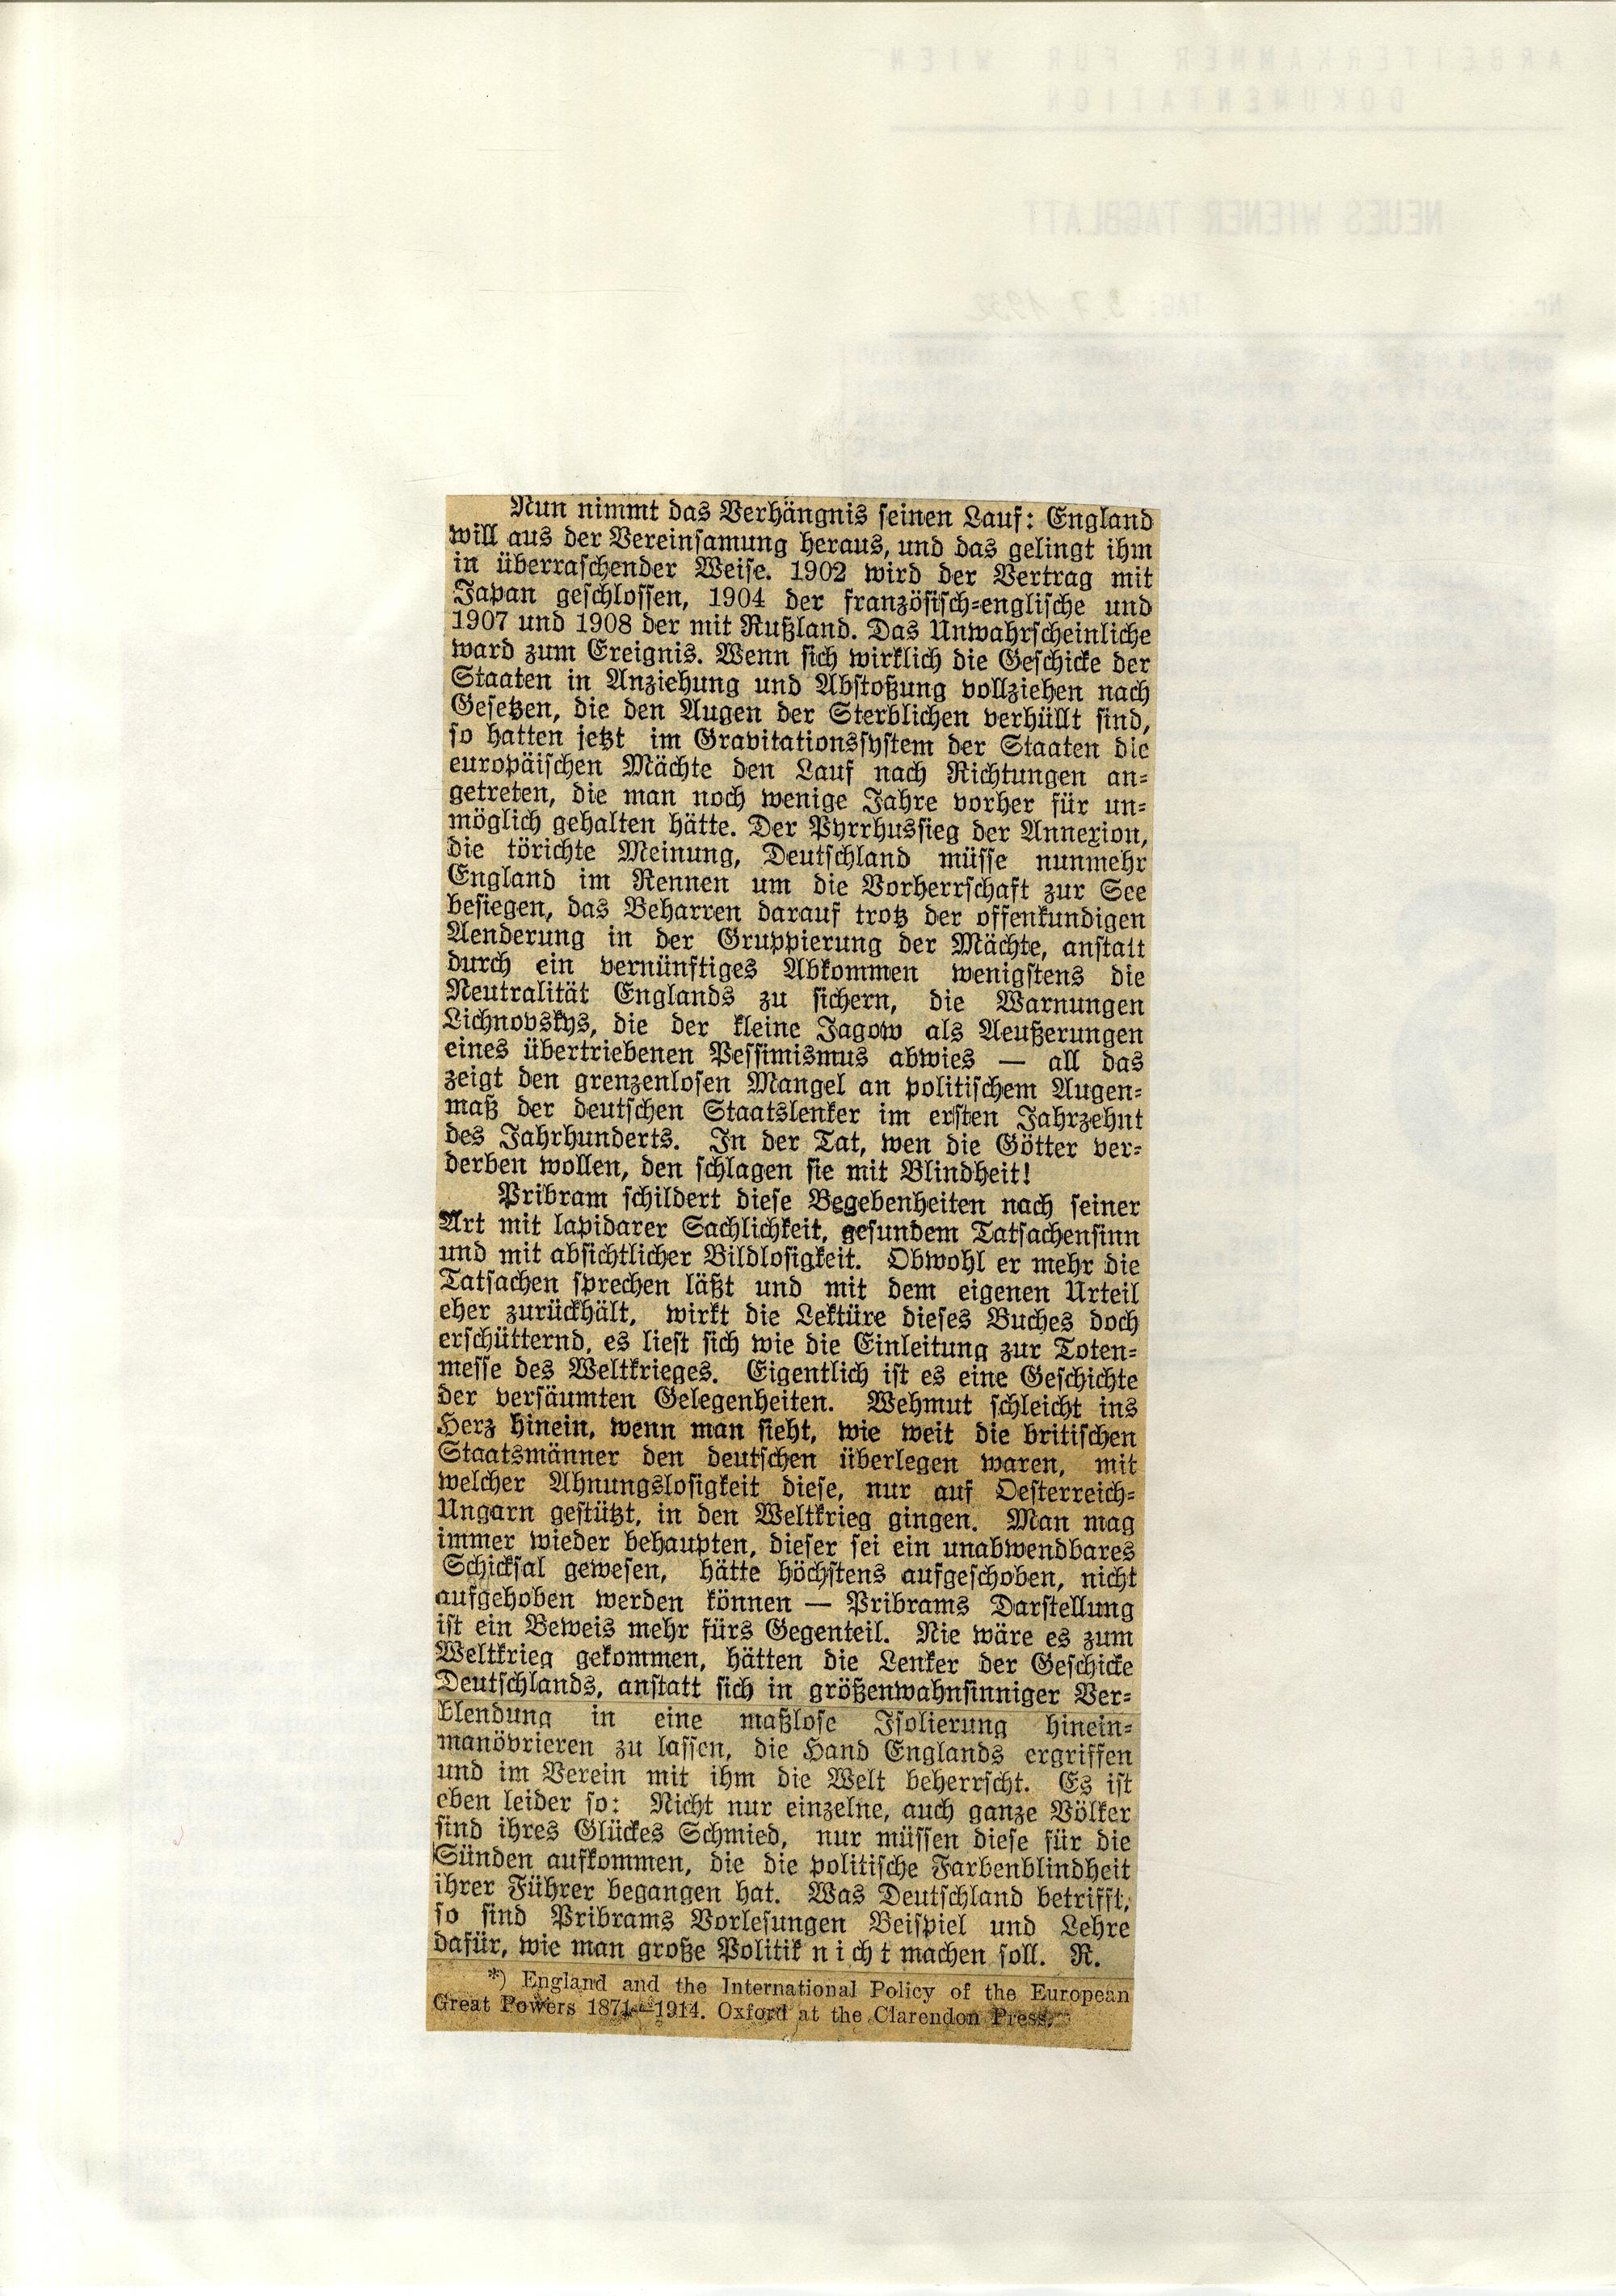 Nun nimmt das Verhängnis seinen Lauf: England
will aus der Vereinsamung heraus, und das gelingt ihm
in überraschender Weise. 1902 wird der Vertrag mit
Japan geschlossen, 1904 der französisch-englische und
1907 und 1908 der mit Rußland. Das Unwahrscheinliche
ward zum Ereignis. Wenn sich wirklich die Geschicke der
Staaten in Anziehung und Abstoßung vollziehen nach
Gesetzen, die den Augen der Sterblichen verhüllt sind,
so hatten jetzt im Gravitationssystem der Staaten die
europäischen Mächte den Lauf nach Richtungen an-
getreten, die man noch wenige Jahre vorher für un-
möglich gehalten hätte. Der Pyrrhussieg der Annexion,
die törichte Meinung, Deutschland müsse nunmehr
England im Rennen um die Vorherrschaft zur See
besiegen, das Beharren darauf trotz der offenkundigen
Aenderung in der Gruppierung der Mächte, anstatt
durch ein vernünftiges Abkommen wenigstens die
Neutralität Englands zu sichern, die Warnungen
Lichnovskys, die der kleine Jagow als Aeußerungen
eines übertriebenen Pessimismus abwies — all das
zeigt den grenzenlosen Mangel an politischem Augen-
maß der deutschen Staatslenker im ersten Jahrzehnt
des Jahrhunderts. In der Tat, wen die Götter ver-
derben wollen, den schlagen sie mit Blindheit!
Pribram schildert diese Begebenheiten nach seiner
Art mit lapidarer Sachlichkeit, gesundem Tatsachensinn
und mit absichtlicher Bildlosigkeit. Obwohl er mehr die
Tatsachen sprechen läßt und mit dem eigenen Urteil
eher zurückhält, wirkt die Lektüre dieses Buches doch
erschütternd, es liest sich wie die Einleitung zur Toten-
messe des Weltkrieges. Eigentlich ist es eine Geschichte
der versäumten Gelegenheiten. Wehmut schleicht ins
Herz hinein, wenn man sieht, wie weit die britischen
Staatsmänner den deutschen überlegen waren, mit
welcher Ahnungslosigkeit diese, nur auf Oesterreich-
Ungarn gestützt, in den Weltkrieg gingen. Man mag
immer wieder behaupten, dieser sei ein unabwendbares
Schicksal gewesen, hätte höchstens aufgeschoben, nicht
aufgehoben werden können — Pribrams Darstellung
ist ein Beweis mehr fürs Gegenteil. Nie wäre es zum
Weltkrieg gekommen, hätten die Lenker der Geschicke
Deutschlands, anstatt sich in größenwahnsinniger Ver-
blendung in eine maßlose Isolierung hinein-
manövrieren zu lassen, die Hand Englands ergriffen
und im Verein mit ihm die Welt beherrscht. Es ist
eben leider so: Nicht nur einzelne, auch ganze Völker
sind ihres Glückes Schmied, nur müssen diese für die
Sünden aufkommen, die die politische Farbenblindheit
ihrer Führer begangen hat. Was Deutschland betrifft,
so sind Pribrams Vorlesungen Beispiel und Lehre
dafür, wie man große Politik nicht machen soll. R.
*) England and the International Policy of the European
Great Powers 1871—1914. Oxford at the Clarendon Press.